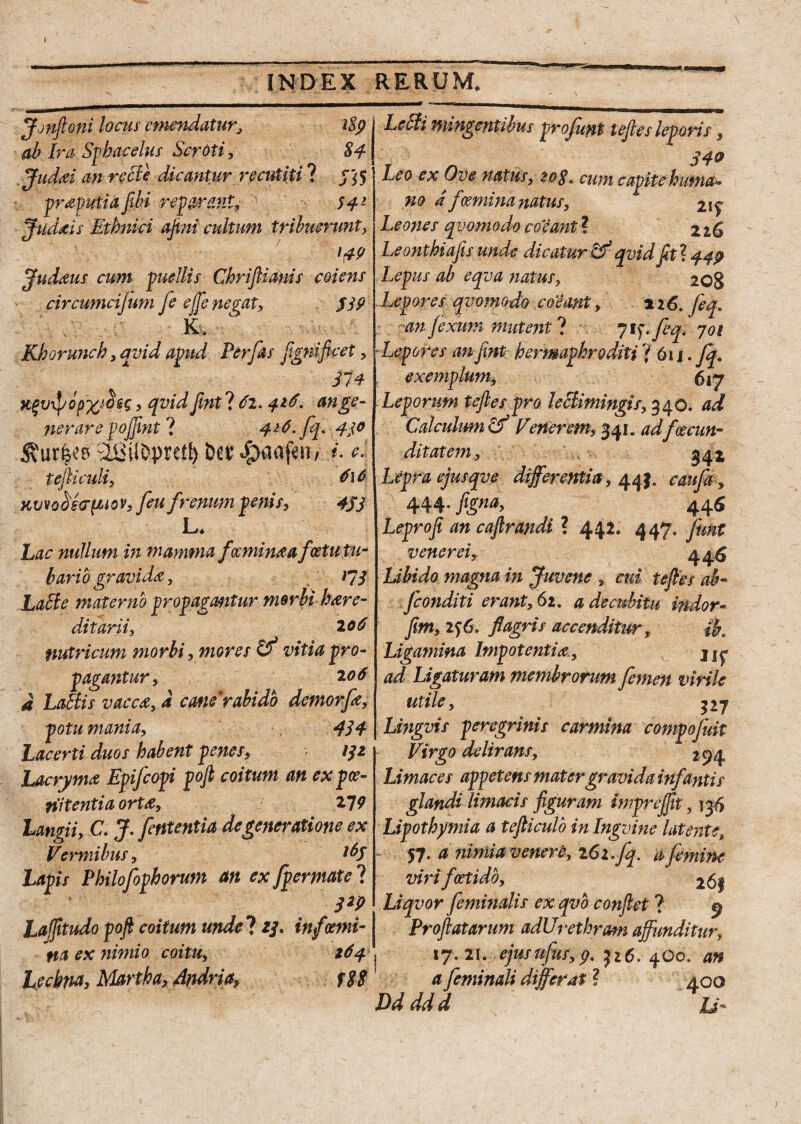 INDEX RERUM.
Jonſtoni locus emendatur, 189
ab Ira Sphacelus Scroti, 84
Judæi an recte dicantur recutiti? 535
præputia ſibi reparant, 542
Judæis Ethnici aſini cultum tribuerunt,
149
Judæus cum puellis Chriſtianis coiens
circumciſum ſe eſſe negat, 539
K.
Khorunch, qvid apud Perſas ſignificet,
374
κρυψόρχιδες, qvid ſint? 62. 426. an ge-
nerare poſſint? 426. ſq. 430
Kurtzes Wildpreth der Haaſen, i. e.
teſticuli, 616
κυνοδέσμιον, ſeu frenum penis, 453
L.
Lac nullum in mamma fœminæ a fœtu tu-
bario gravidæ, 173
Lacte materno propagantur morbi hære-
ditarii, 206
nutricum morbi, mores & vitia pro-
pagantur, 206
à Lactis vaccæ, à cane rabido demorſæ,
potu mania, 434
Lacerti duos habent penes, 132
Lacrymæ Epiſcopi poſt coitum an ex pœ-
nitentia ortæ, 279
Langii, C. J. ſententia de generatione ex
Vermibus, 165
Lapis Philoſophorum an ex ſpermate?
329
Laſſitudo poſt coitum unde? 23. in fœmi-
na ex nimio coitu, 264
Lechna, Martha, Andria, 588
Lecti mingentibus proſunt teſtes leporis,
340
Leo ex Ove natus, 208. cum capite huma-
no à fœmina natus, 215
Leones qvomodo coëant? 226
Leonthiaſis unde dicatur & qvid ſit? 449
Lepus ab eqva natus, 208
Lepores qvomodo coëant, 226. ſeq.
an ſexum mutent? 715. ſeq. 701
Lepores an ſint hermaphroditi? 611. ſq.
exemplum, 617
Leporum teſtes pro lectimingis, 340. ad
Calculum & Venerem, 341. ad fœcun-
ditatem, 342
Lepra ejusqve differentia, 443. cauſa,
444. ſigna, 446
Leproſi an caſtrandi? 442. 447. ſunt
venerei, 446
Libido magna in Juvene, cui teſtes ab-
ſconditi erant, 62. a decubitu in dor-
ſim, 256. flagris accenditur, ib.
Ligamina Impotentiæ, 115
ad Ligaturam membrorum ſemen virile
utile, 327
Lingvis peregrinis carmina compoſuit
Virgo delirans, 294
Limaces appetens mater gravida infantis
glandi limacis figuram impreſſit, 136
Lipothymia a teſticulo in Ingvine latente,
57. a nimia venere, 262. ſq. a ſemine
viri fœtido, 263
Liqvor ſeminalis ex qvo conſtet? 9
Proſtatarum ad Urethram affunditur,
17. 21. ejus uſus, 9. 326. 400. an
a ſeminali differat? 400
Dd dd d Li-